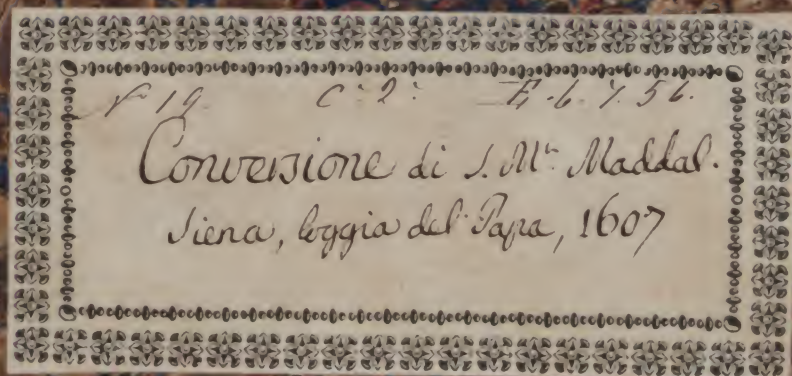 N 19. C: 2: E. 6. 7. 56.
Conversione di S. Mª. Maddal.
Siena, loggia del Papa, 1607